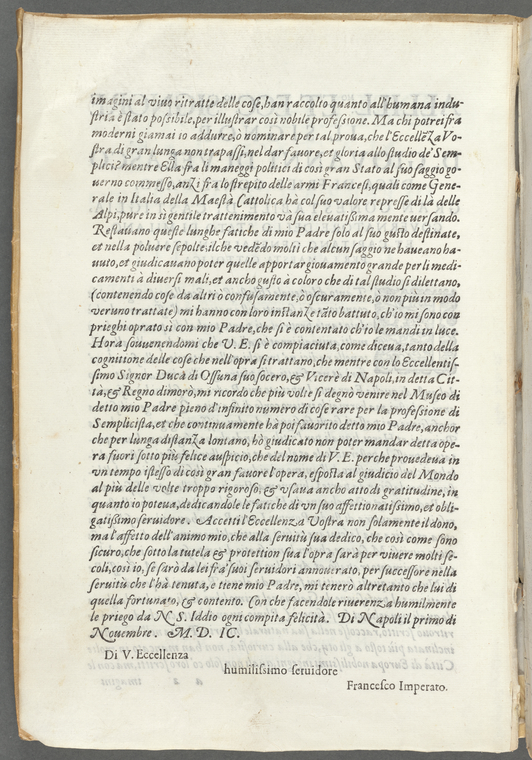 imagini al viuo ritratte delle cose, han raccolto quanto all'humana indu-
stria è stato possibile, per illustrar così nobile professione. Ma chi potrei frà
moderni giamai io addurre, ò nominare per tal proua, che l'Eccellẽza Vo-
stra di gran lunga non trapassi, nel dar fauore, et gloria allo studio de' Sem-
plici? mentre Ella frà li maneggi politici di così gran Stato al suo saggio go-
uerno commesso, anzi frà lo strepito delle armi Francesi, quali come Gene-
rale in Italia della Maestà Cattolica hà col suo valore represse di là delle
Alpi, pure in sì gentile trattenimento và sua eleuatissima mente versando.
Restauano queste lunghe fatiche di mio Padre solo al suo gusto destinate,
et nella poluere sepolte: ilche vedẽdo molti che alcun saggio ne haueano ha-
uuto, et giudicauano poter quelle apportar giouamento grande per li medi-
camenti à diuersi mali, et ancho gusto à coloro che di tal studio si dilettano,
(contenendo cose da altri ò confusamente, ò oscuramente, ò non più in modo
veruno trattate) mi hanno con loro instanze tãto battuto, ch'io mi sono con
prieghi oprato sì con mio Padre, che si è contentato ch'io le mandi in luce.
Hora souuenendomi che V. E. si è compiaciuta, come diceua, tanto della
cognitione delle cose che nell'opra si trattano, che mentre con lo Eccellentis-
simo Signor Ducà di Ossuna suo socero, & Vicerè di Napoli, in detta Cit-
tà, & Regno dimorò, mi ricordo che più volte si degnò venire nel Museo di
detto mio Padre pieno d'infinito numero di cose rare per la professione di
Semplicista, et che continuamente hà poi fauorito detto mio Padre, anchor
che per lunga distanza lontano, hò giudicato non poter mandar detta ope-
ra fuori sotto più felice auspicio, che del nome di V. E. perche prouedeua in
vn tempo istesso di così gran fauore l'opera, esposta al giudicio del Mondo
al più delle volte troppo rigoroso, & vsaua ancho atto di gratitudine, in
quanto io poteua, dedicandole le fatiche di vn suo affettionatissimo, et obli-
gatissimo seruidore. Accetti l'Eccellenza Vostra non solamente il dono,
ma l'affetto dell'animo mio, che alla seruitù sua dedico, che così come sono
sicuro, che sotto la tutela & protettion sua l'opra sarà per viuere molti se-
coli, così io, se sarò da lei fra' suoi seruidori annouerato, per successore nella
seruitù che l'hà tenuta, e tiene mio Padre, mi tenerò altretanto che lui di
quella fortunato, & contento. Con che facendole riuerenza humilmente
le priego da N. S. Iddio ogni compita felicità. Di Napoli il primo di
Nouembre. M. D. IC.
Di V. Eccellenza
humilissimo seruidore
Francesco Imperato.